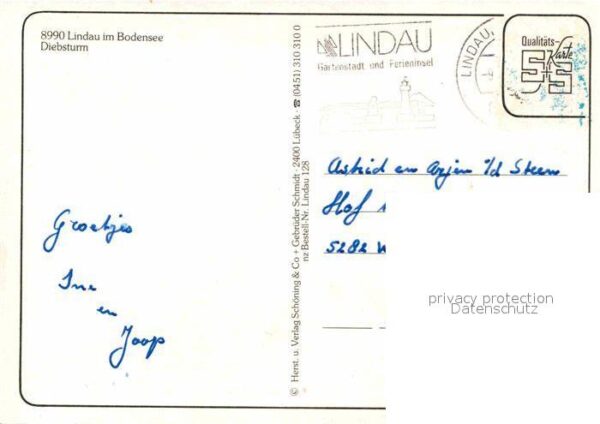 8990 Lindau im Bodensee
Diebsturm
Groetjes
Ine
en
Joop
© Herst. u. Verlag Schöning & Co + Gebrüder Schmidt · 2400 Lübeck · ☎ (0451) 310 310 0
nz Bestell-Nr. Lindau 128
LINDAU
Gartenstadt und Ferieninsel
LINDAU,
Qualitäts-
Karte
Astrid en Arjen v/d Steen
Hof
5282
privacy protection
Datenschutz